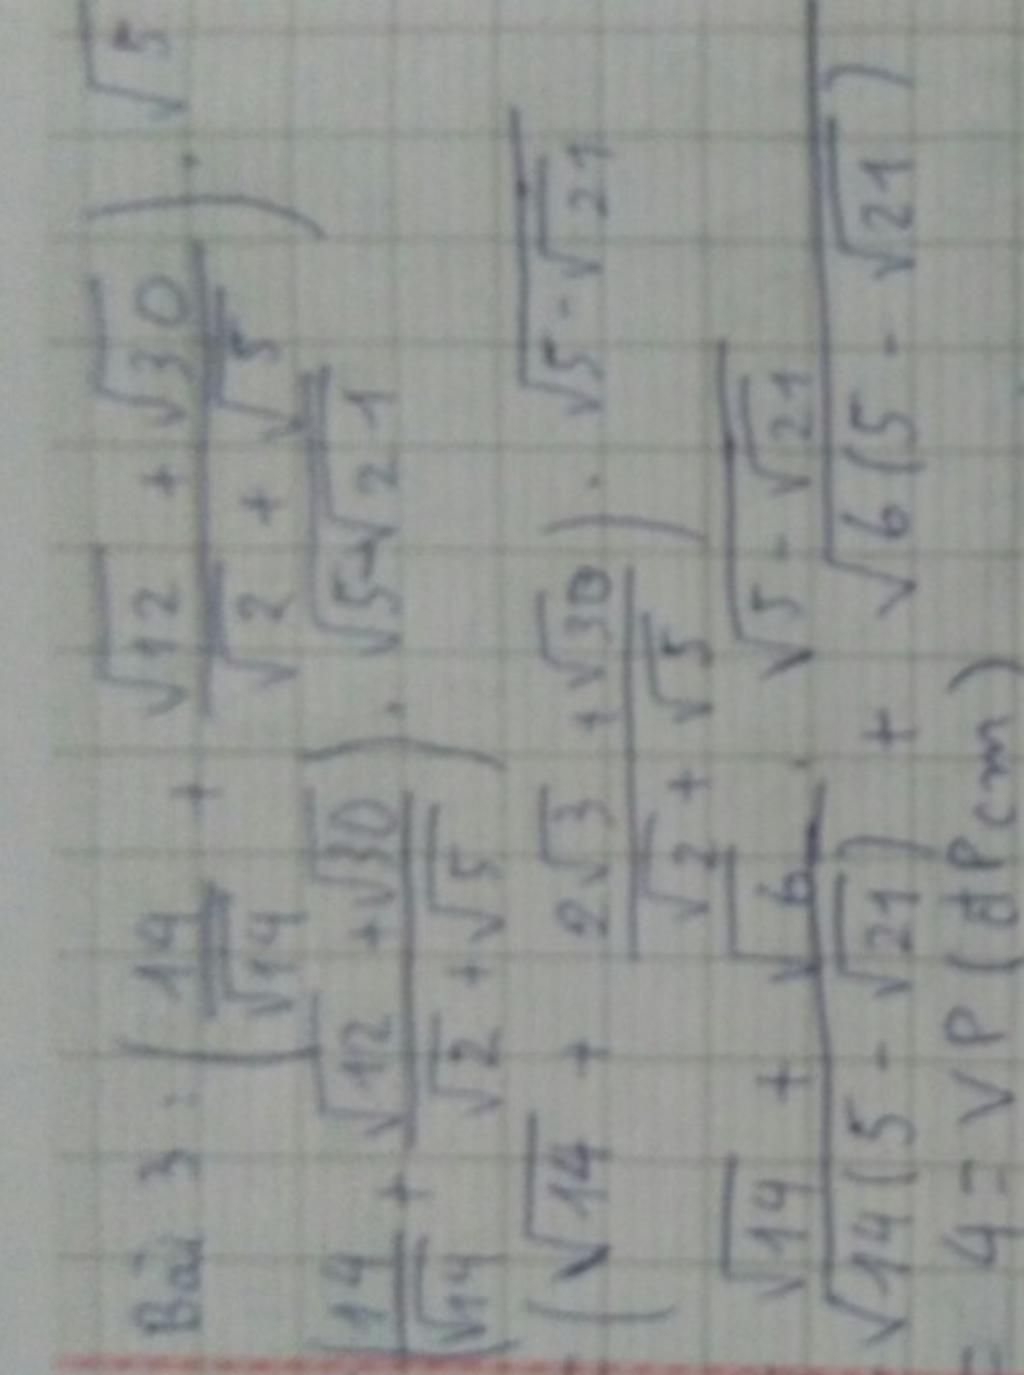 Bài 3 : ( 14/√14 + (√12 + √30)/(√2 + √5) ) . √5
(14/√14 + (√12 + √30)/(√2 + √5)) . √(5-√21)
(√14 + (2√3 + √30)/(√2 + √5)) . √(5 - √21)
√14 + √6 . √(5 - √21)
√(14(5 - √21)) + √(6(5 - √21))
= 4 = VP (đPcm)